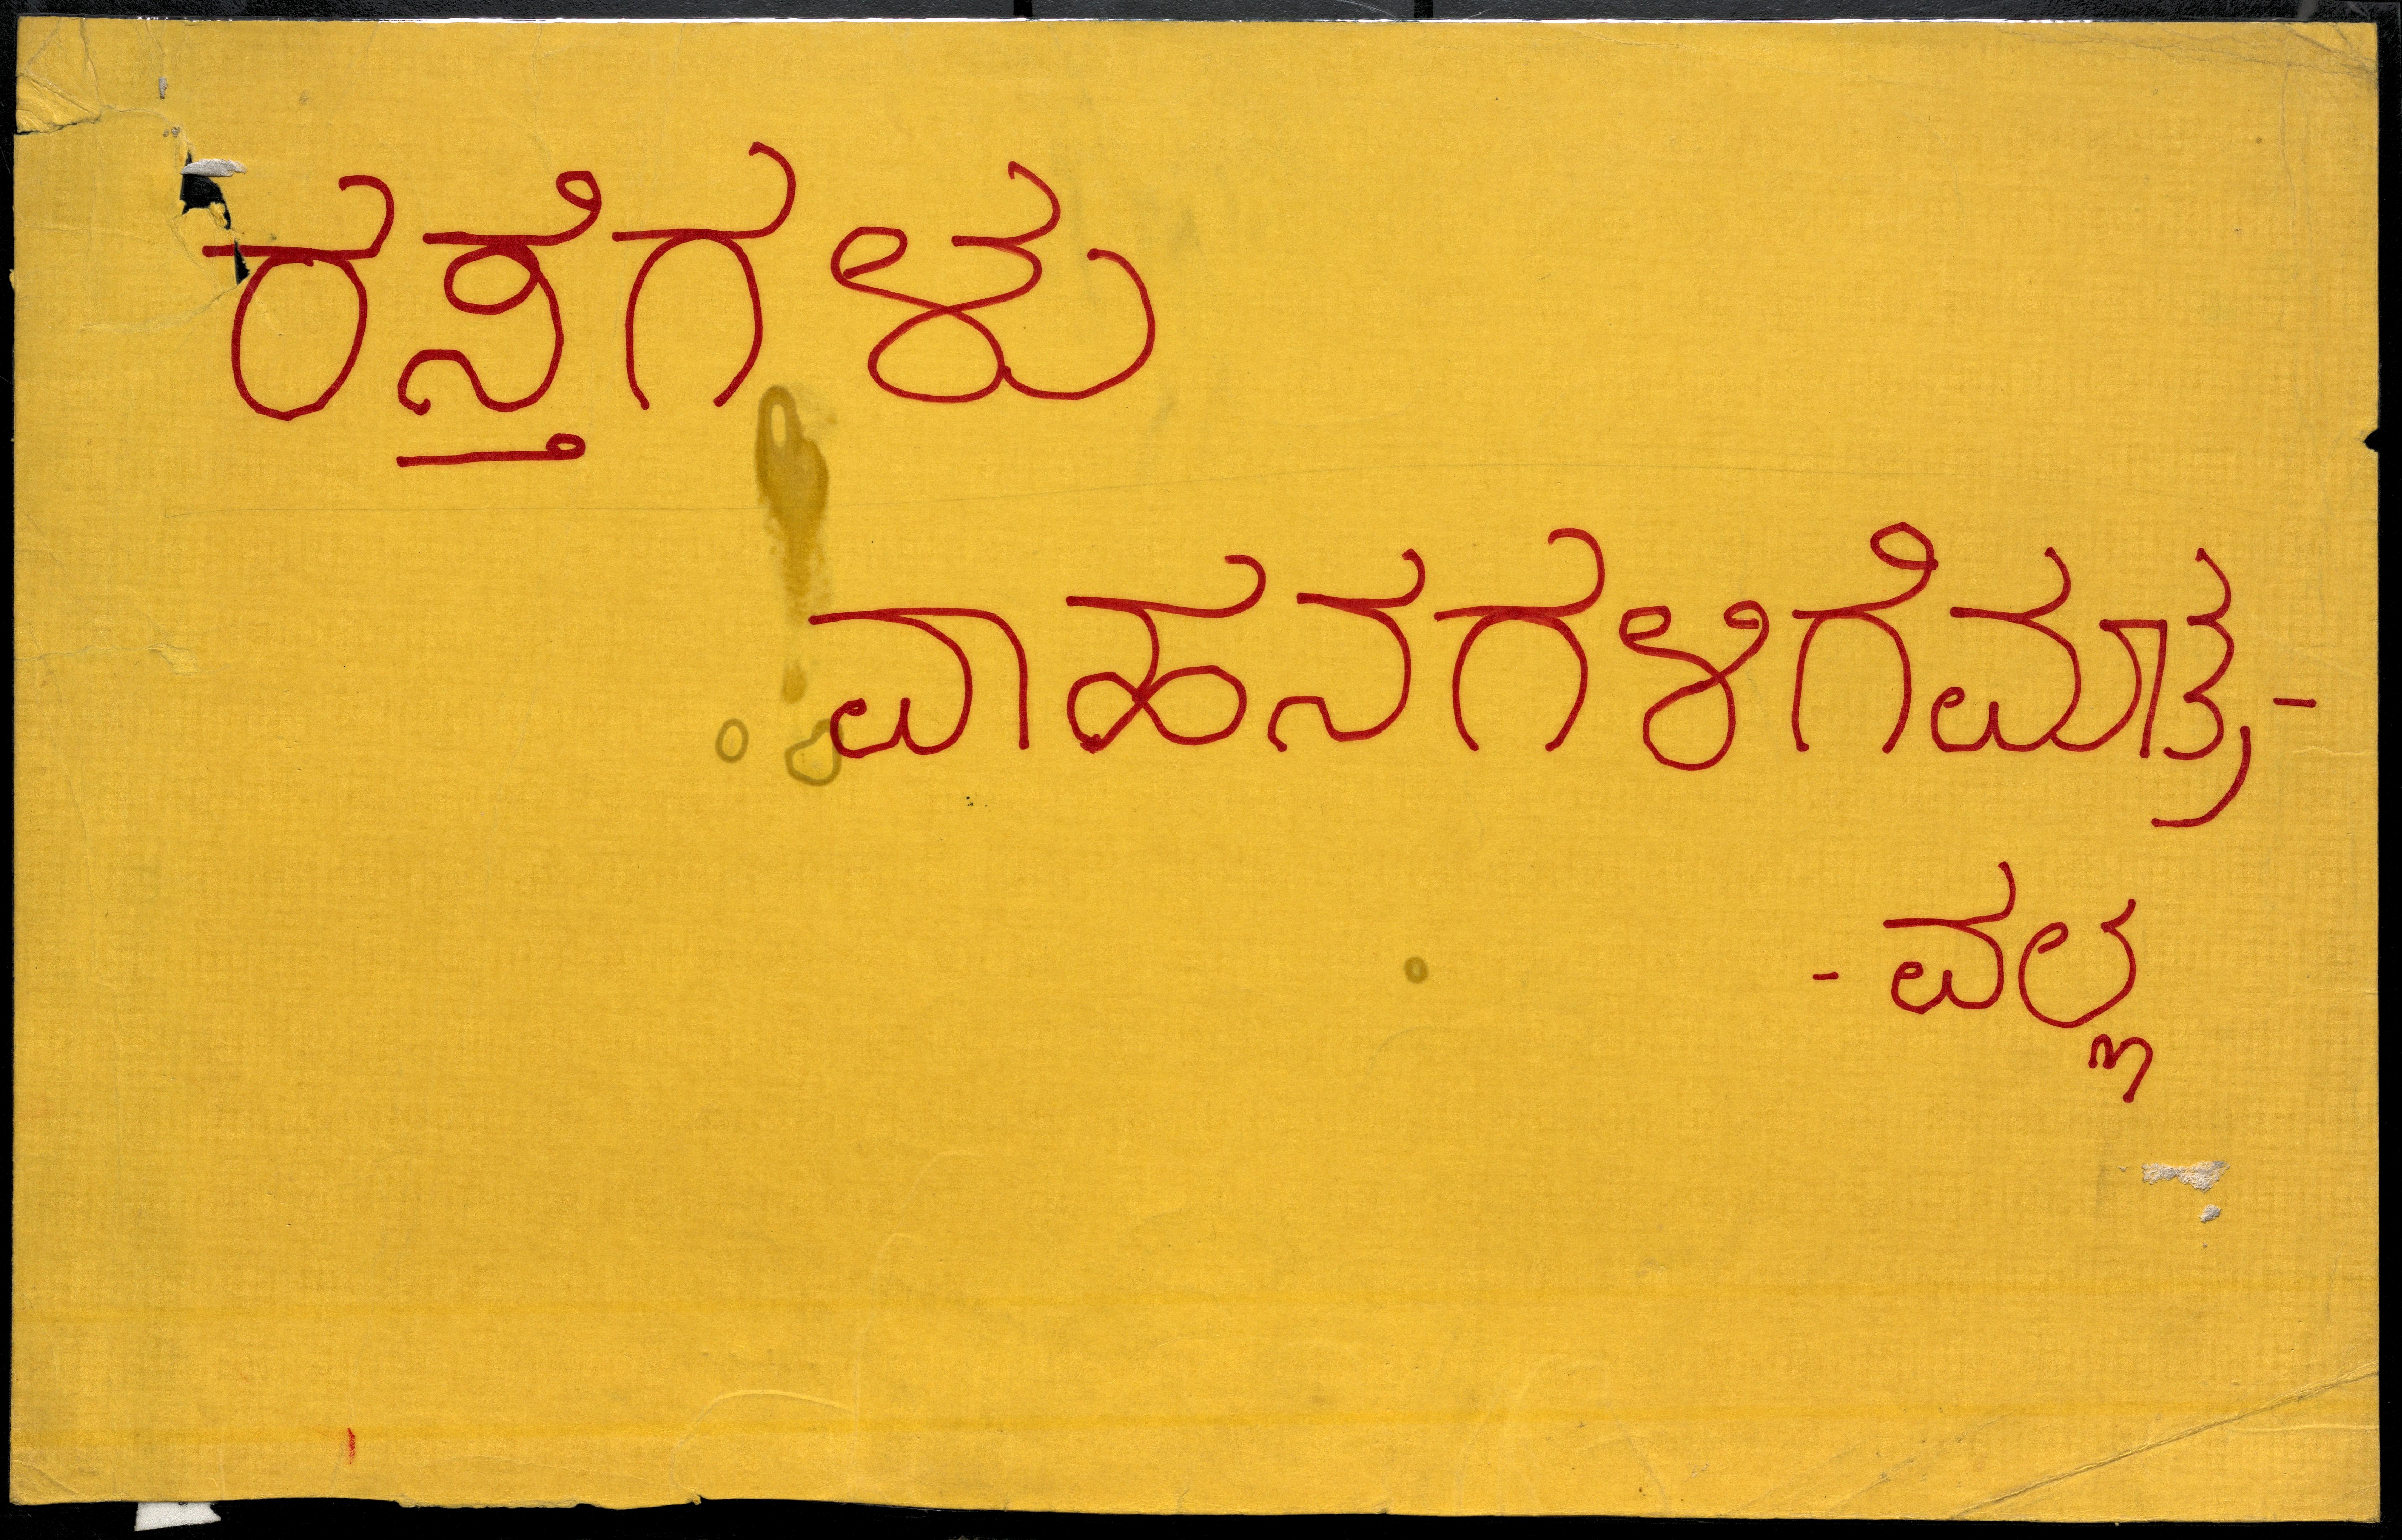 ರಸ್ತೆಗಳು
ವಾಹನಗಳಿಗೆ ಮಾತ್ರ -
- ವಲ್ಲ